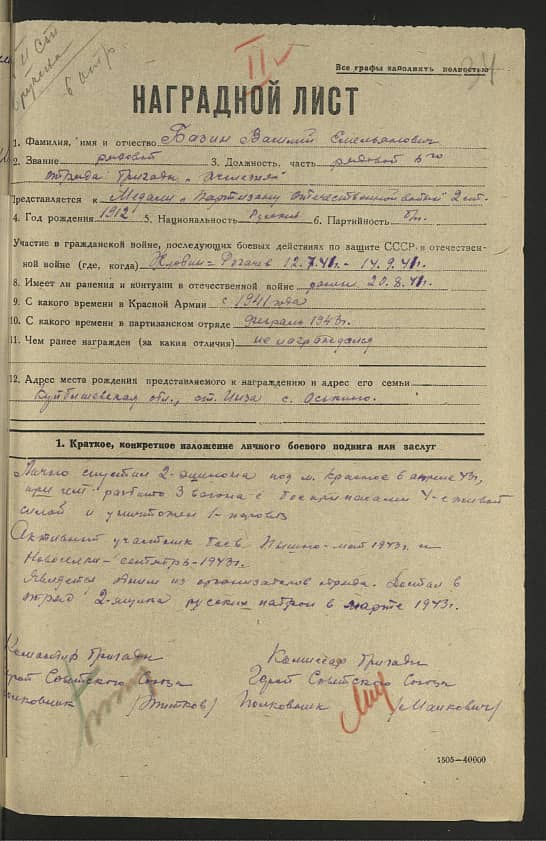 II
Все графы заполнять полностью
НАГРАДНОЙ ЛИСТ
1. Фамилия, имя и отчество Базин Василий Емельянович
2. Звание рядовой 3. Должность, часть рядовой 6-го
отряда бригады „Железняк"
Представляется к Медали „Партизану отечественной войны" 2 ст.
4. Год рождения 1912 5. Национальность Русский 6. Партийность б/п.
Участие в гражданской войне, последующих боевых действиях по защите СССР в отечествен-
ной войне (где, когда) Рогачев 12.7.41г. - 14.9.41г.
8. Имеет ли ранения и контузии в отечественной войне ранен 20.8.41г.
9. С какого времени в Красной Армии с 1941 года
10. С какого времени в партизанском отряде февраль 1943г.
11. Чем ранее награжден (за какия отличия) не награждался
12. Адрес места рождения представляемого к награждению и адрес его семьи
Куйбышевская обл., ст. Инза с. Оськино.
1. Краткое, конкретное изложение личного боевого подвига или заслуг
Лично спустил 2-эшелона под м. Красное в апреле 43г,
при чем разбито 3 вагона с боеприпасами 4-с живой
силой и уничтожен 1-паровоз
Активный участник боев Пышно-май 1943г. и
Новоселки-сентябрь-1943г.
Является одним из организаторов отряда. Достал в
отряд 2-ящика русских патрон в марте 1943г.
Командир бригады
Герой Советского Союза
полковник (Титков)
Комиссар бригады
Герой Советского Союза
Полковник (Манкович)
1505—40000